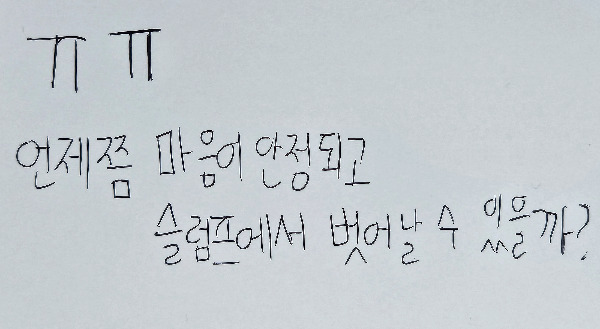 ㅠㅠ
언제쯤 마음이 안정되고
슬럼프에서 벗어날 수 있을까?